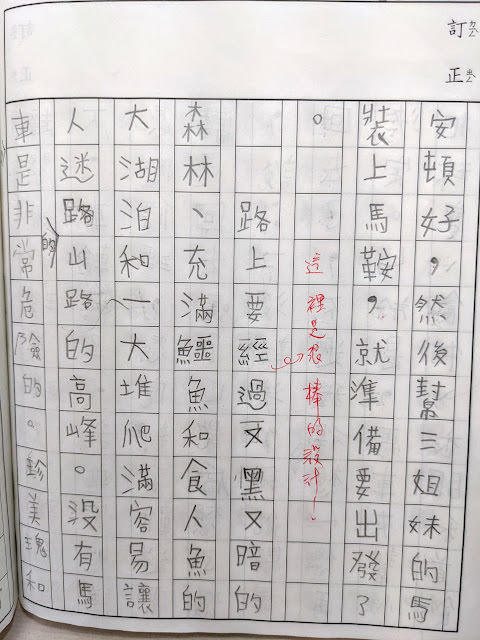 訂ㄉㄧㄥˋ
正ㄓㄥˋ
安頓好，然後幫三姐妹的馬
裝上馬鞍，就準備要出發了
。
這裡是很棒的設計！
路上要經過又黑又暗的
森林、充滿鱷魚和食人魚的
大湖泊和一大堆爬滿容易讓
人迷路的山路的高峰。沒有馬
車是非常危險的。鉁美瑰和